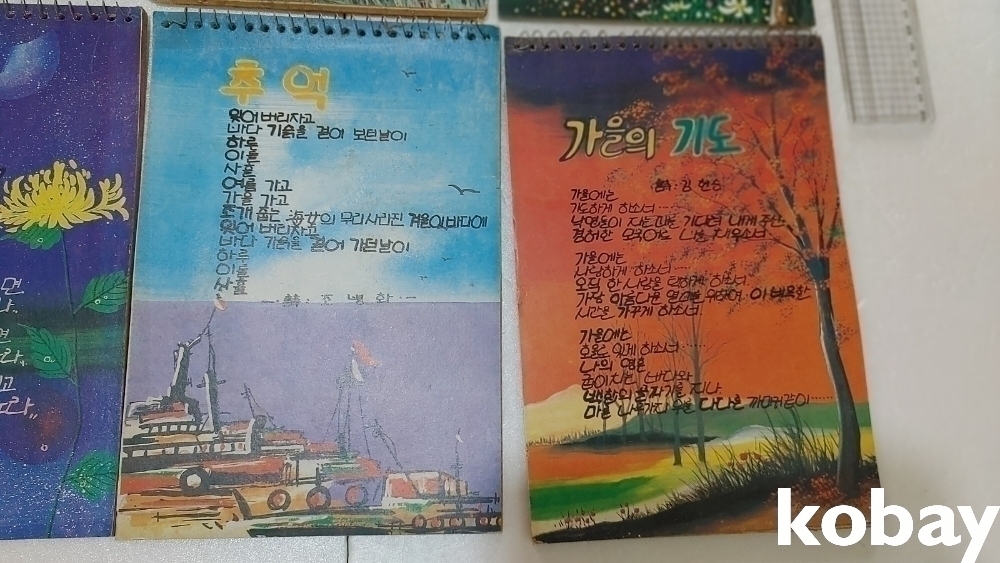 면
나.
면
라,,
고
노라,,
추억
잊어버리자고
바다 기슭을 걸어 보던날이
하루
이틀
사흘
여름 가고
가을 가고
조개 줍는 海女의 무리사라진 겨울이바다에
잊어버리자고
바다 기슭을 걸어 가던날이
하루
이틀
사흘
詩. 조 병 화
가을의 기도
詩: 김 현승
가을에는
기도하게 하소서.....
낙엽들이 지는때를 기다려 내게 주신
겸허한 모국어로 나를 채우소서.
가을에는
사랑하게 하소서....
오직 한 사람을 택하게 하소서.
가장 아름다운 열매를 위하여 이 비옥한
시간을 가꾸게 하소서.
가을에는
호올로 있게 하소서......
나의 영혼
굽이치는 바다와
백합의 골짜기를 지나
마른 나뭇가지 다다른 까마귀같이......
kobay